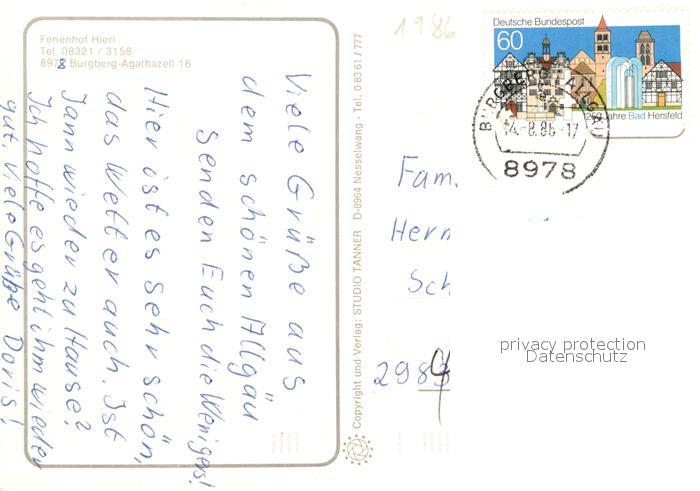 Ferienhof Hierl
Tel. 08321 / 3158
8978 Burgberg-Agathazell 16
Viele Grüße aus
dem schönen Allgäu
senden Euch die Wenigers!
Hier ist es sehr schön,
das Wetter auch. Ist
Jann wieder zu Hause?
Ich hoffe es geht ihm wieder
gut. Viele Grüße Doris!
Copyright und Verlag: STUDIO TANNER D-8964 Nesselwang - Tel. 0 83 61 / 777
1986
Deutsche Bundespost
60
1250 Jahre Bad Hersfeld
BURGBERG I ALLGÄU
14.-8.86-17
8978
Fam.
Herm
Sch
298
privacy protection
Datenschutz